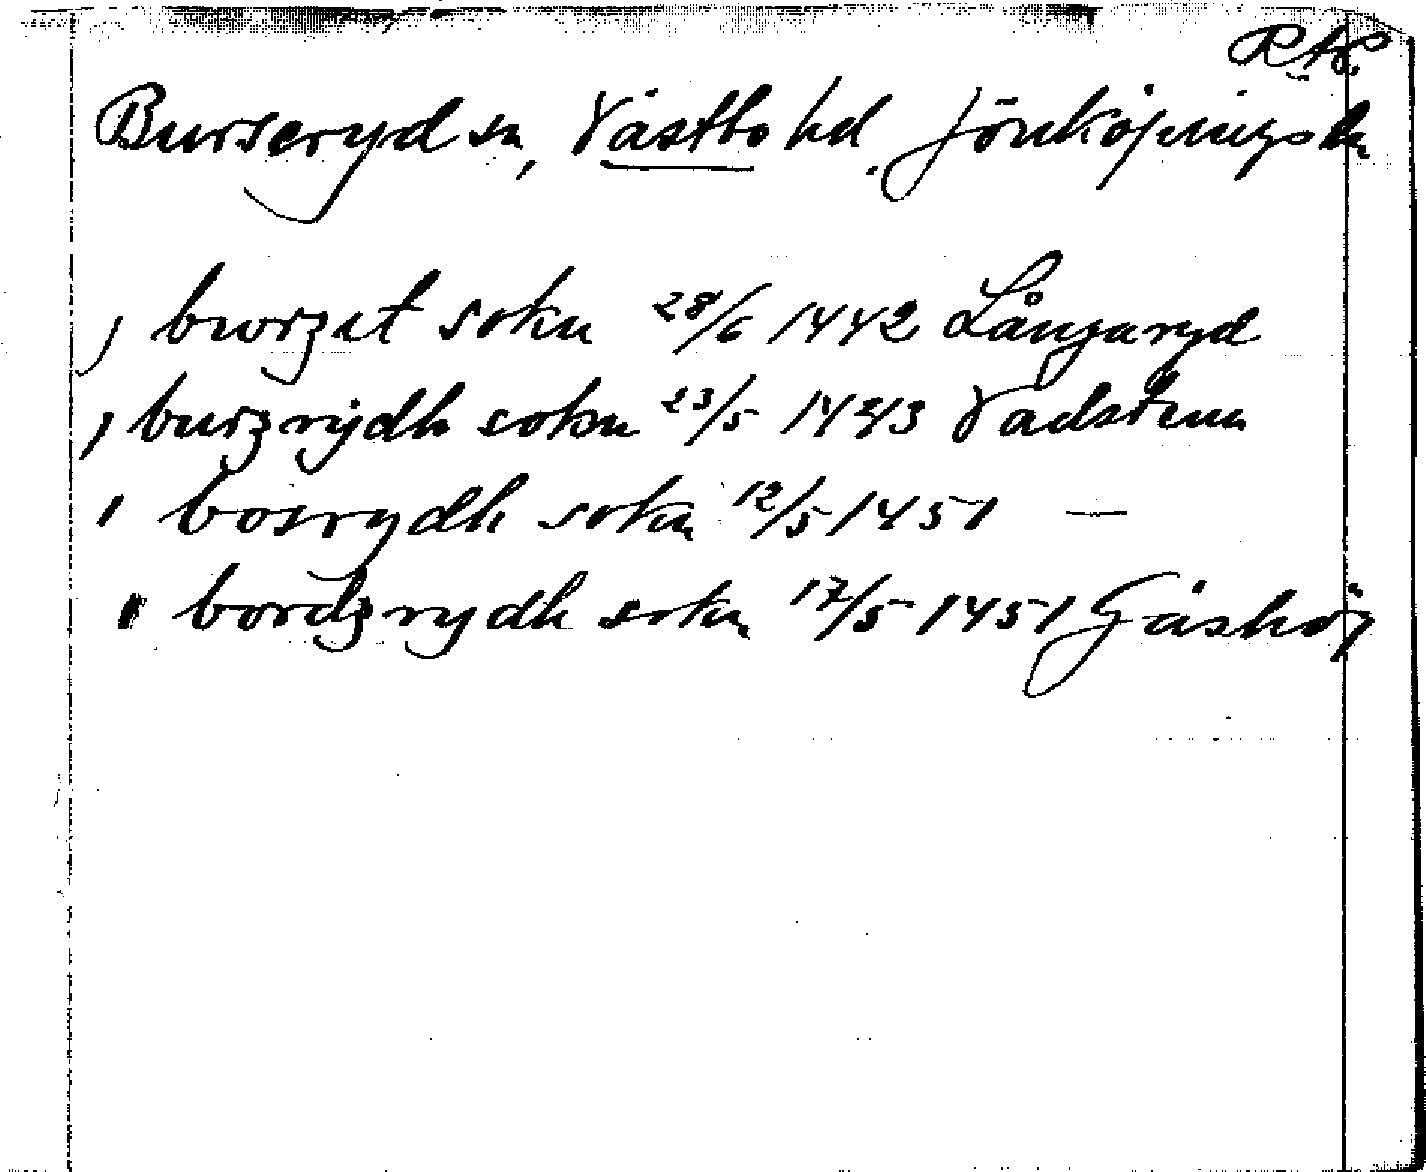 R.A.
Burseryd sn, Västbo hd. Jönköpings ln
j burzet sokn 28/6 1442 Långaryd
j burzrydh sokn 23/5 1443 Vadstena
i bosrydh sokn 12/5 1451 —
i bordzrydh sokn 17/5 1451 Gåshöj